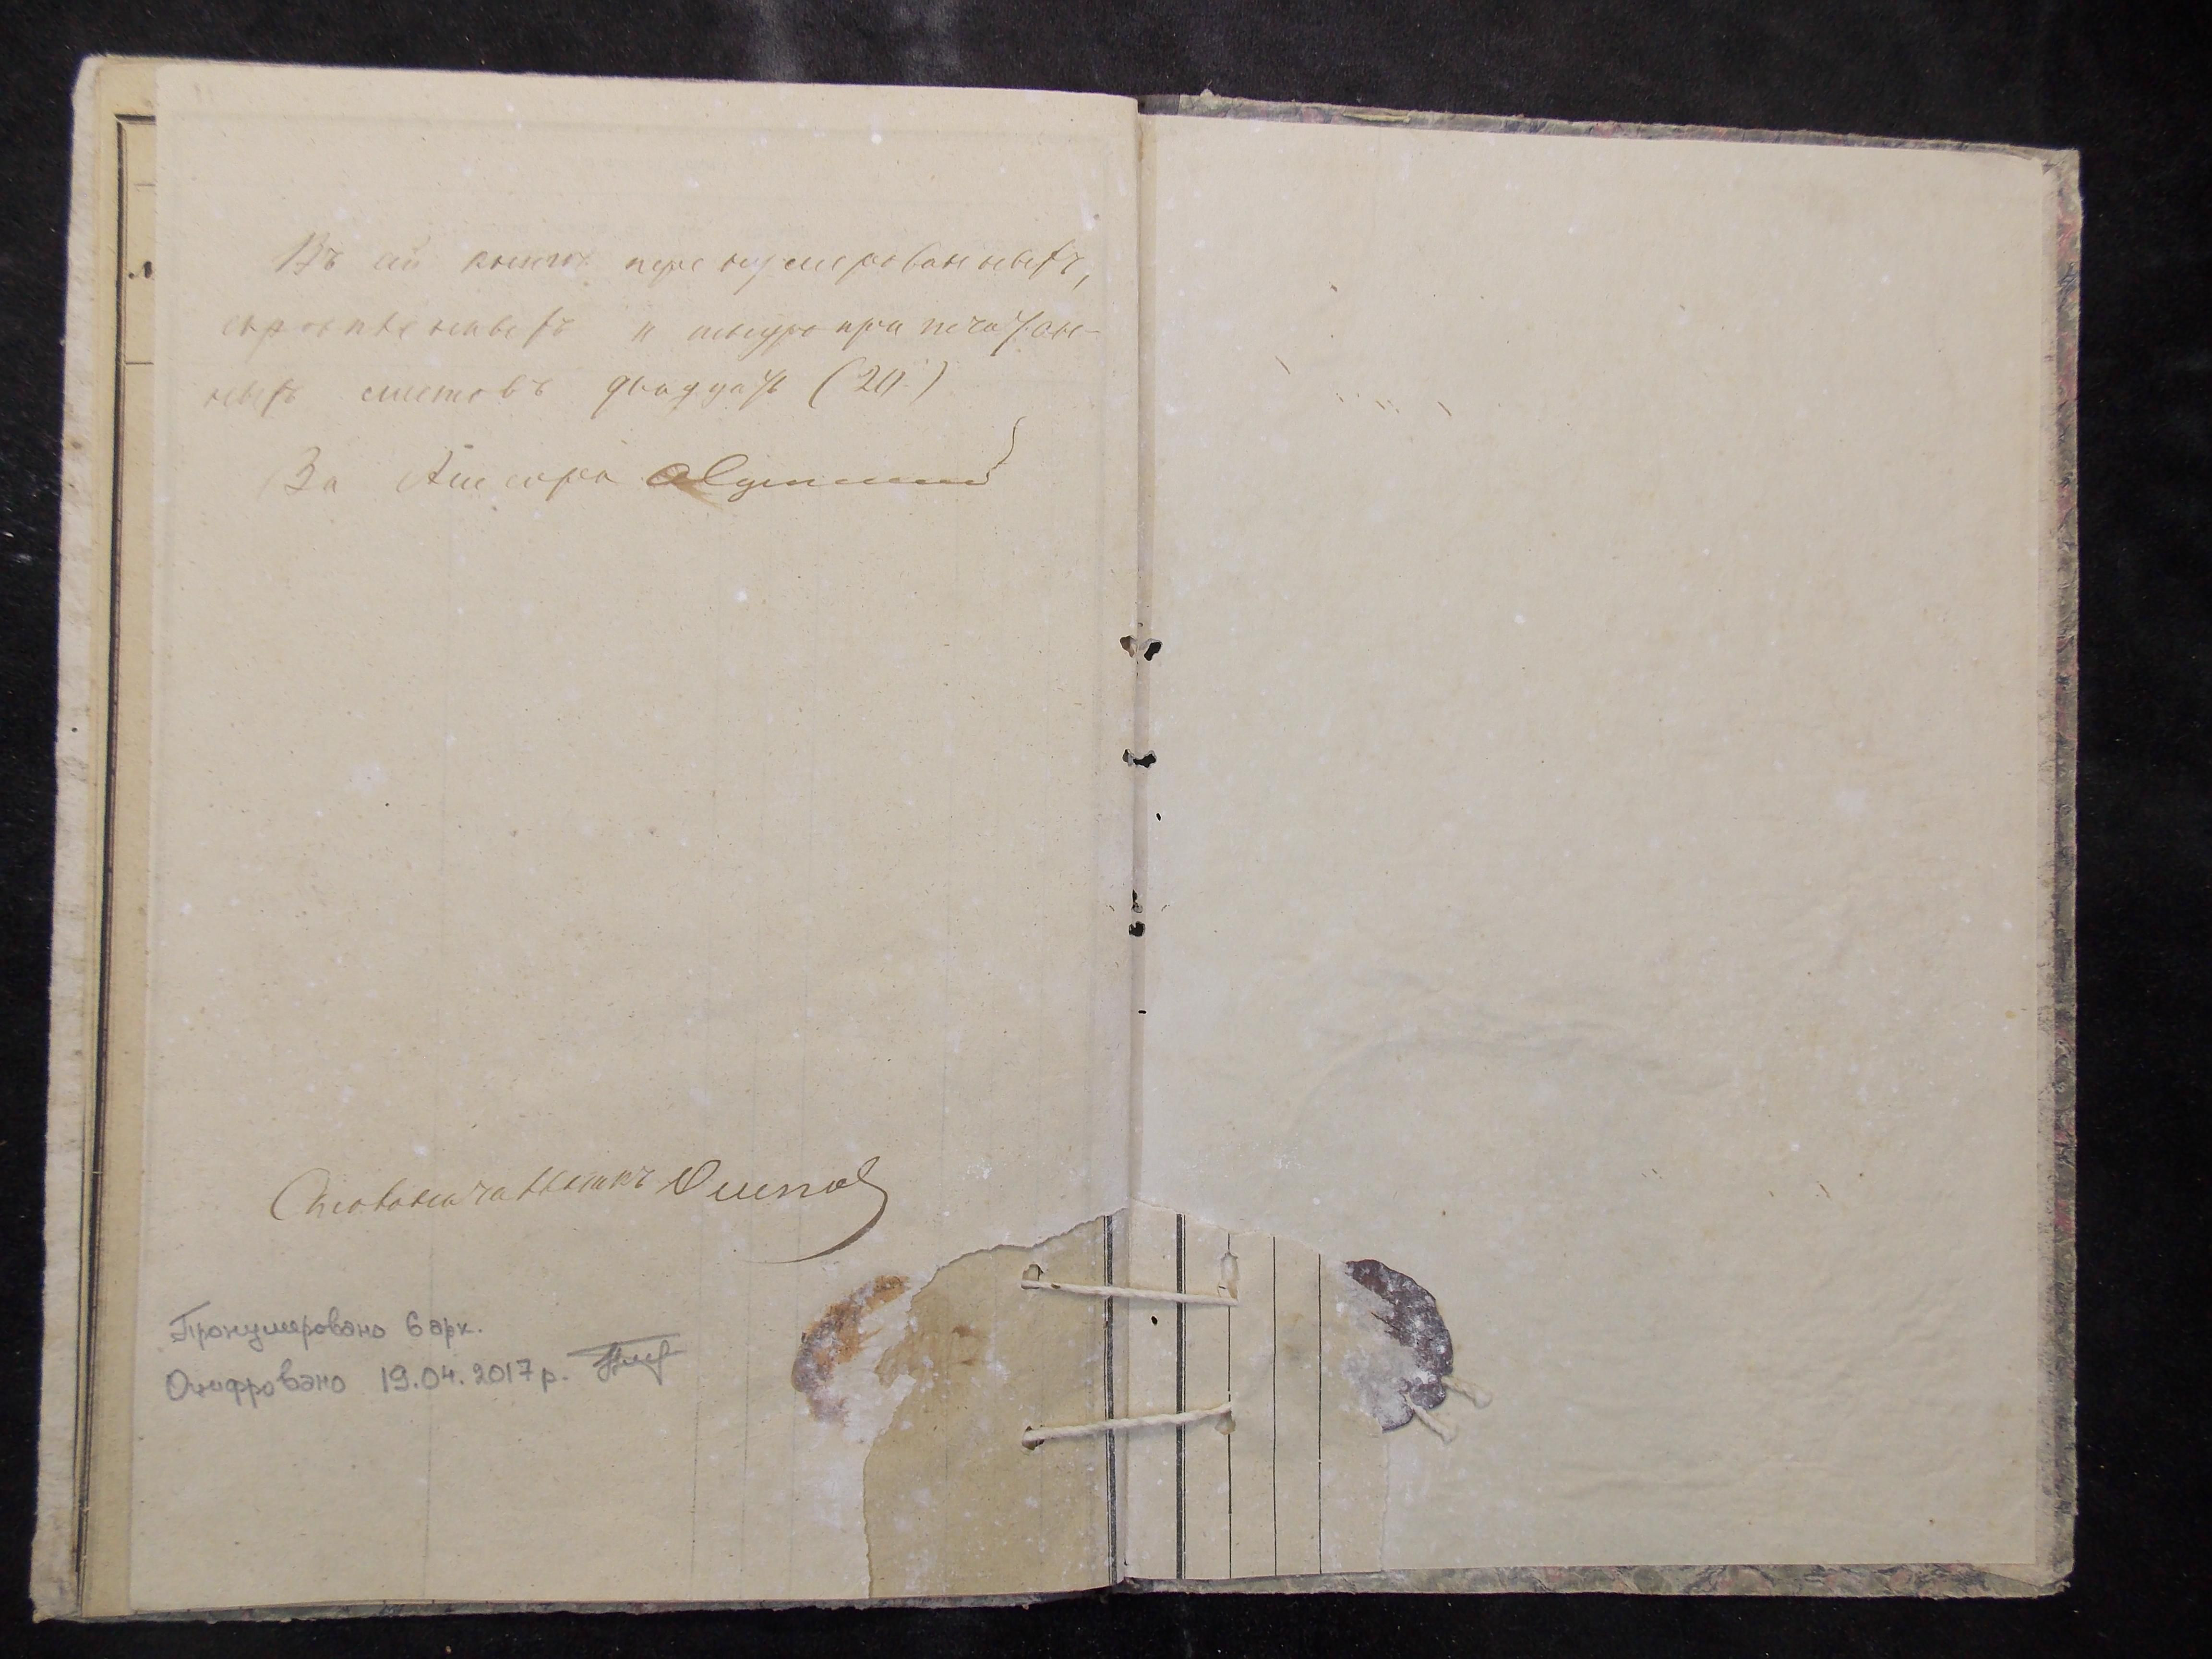 Въ сей книгѣ перенумерованныхъ,
скрѣпленныхъ и шнуроприпечатан-
ныхъ листовъ двадцать (20)
За
Столоначальникъ Осипов
Пронумеровано 6 арк.
Оцифровано 19.04.2017 р.